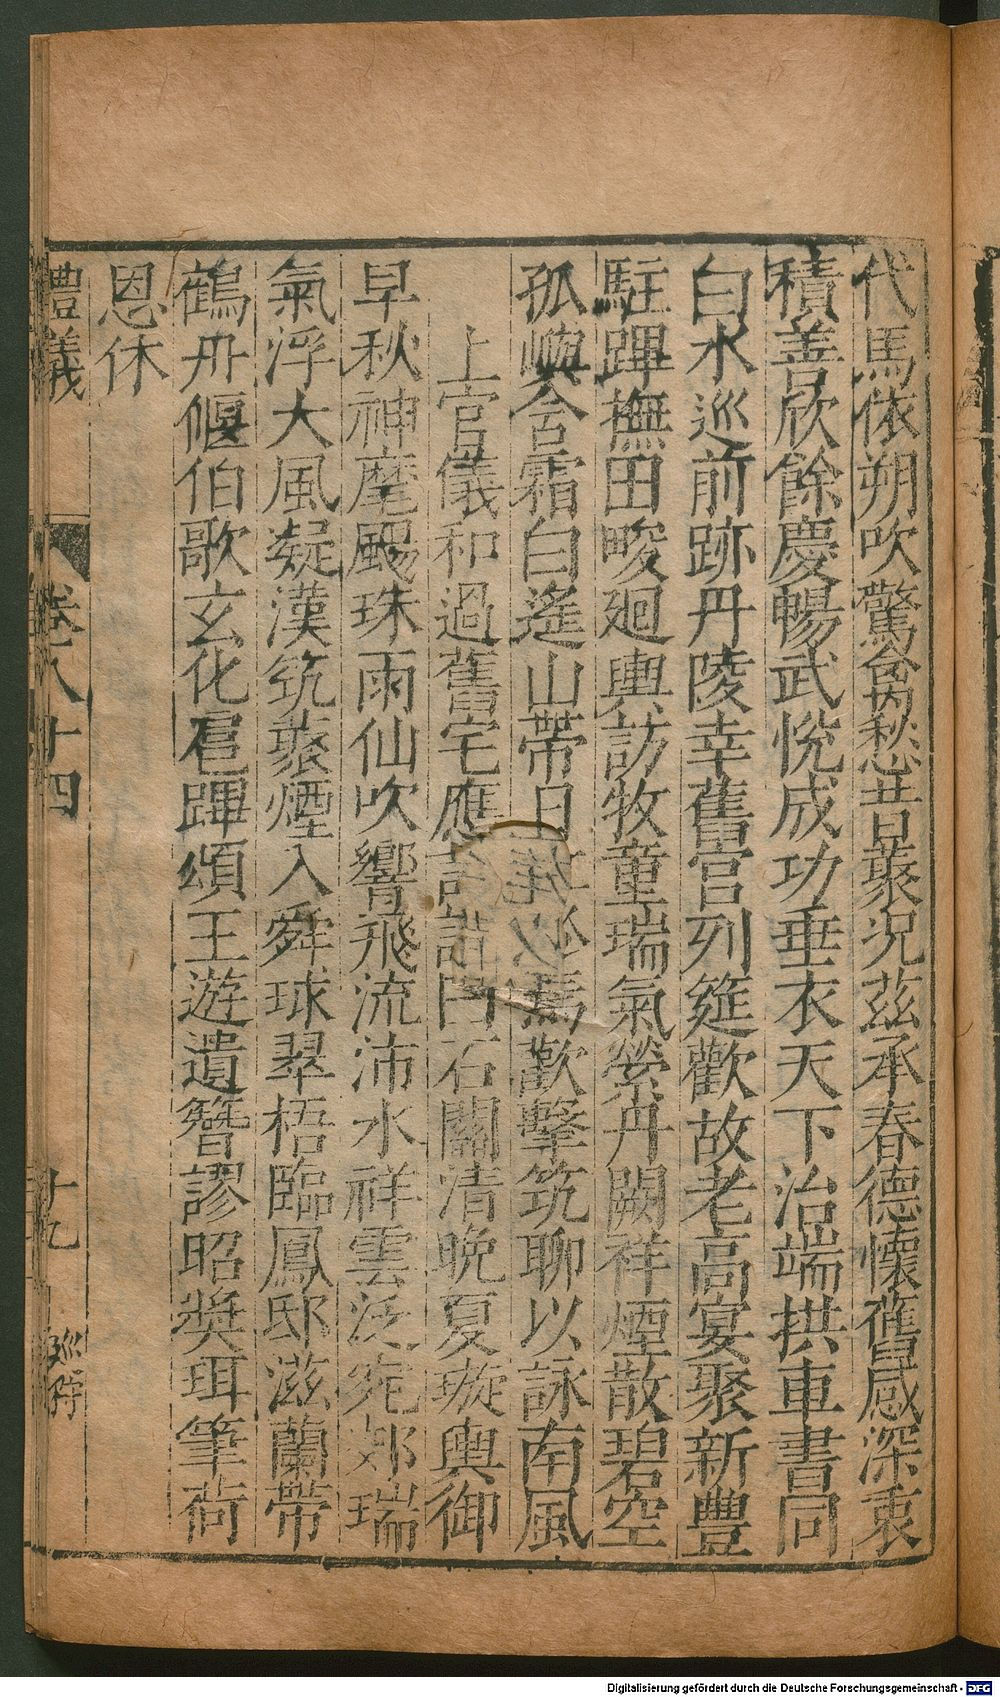 代馬依朔吹驚禽愁昔叢況茲承春德懷舊感深衷
積善欣餘慶暢武悅成功垂衣天下治端拱車書同
白水巡前跡丹陵幸舊宮列筵歡故老高宴聚新豐
駐蹕撫田畯廻輿訪牧童瑞氣縈丹闕祥煙散碧空
孤嶼含霜白遙山帶日 馬歡擊筑聊以詠南風
上官儀和過舊宅應詔 石關清晚夏璇輿御
早秋神麾颺珠雨仙吹響飛流沛水祥雲泛宛郊瑞
氣浮大風凝漢筑叢煙入舜球翠梧臨鳳邸滋蘭帶
鶴舟偃伯歌玄化扈蹕頌王遊遺簪謬昭奬珥筆荷
恩休
禮儀 卷八十四 十九 巡狩
Digitalisierung gefördert durch die Deutsche Forschungsgemeinschaft - DFG